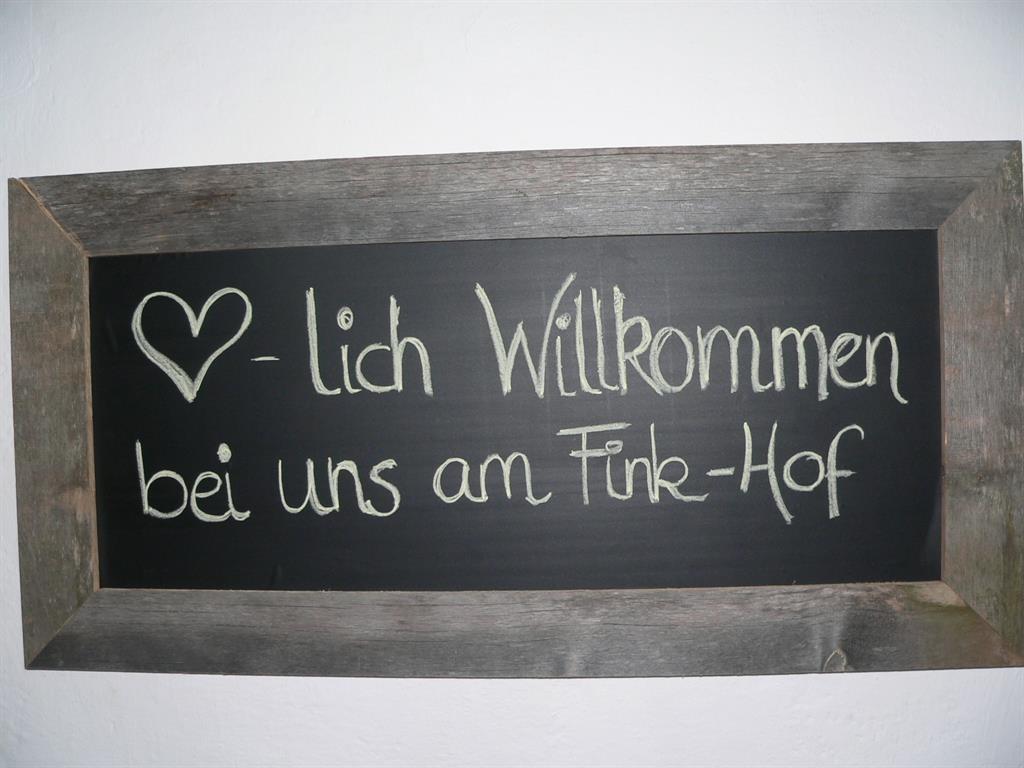 ♡-lich Willkommen
bei uns am Fink-Hof